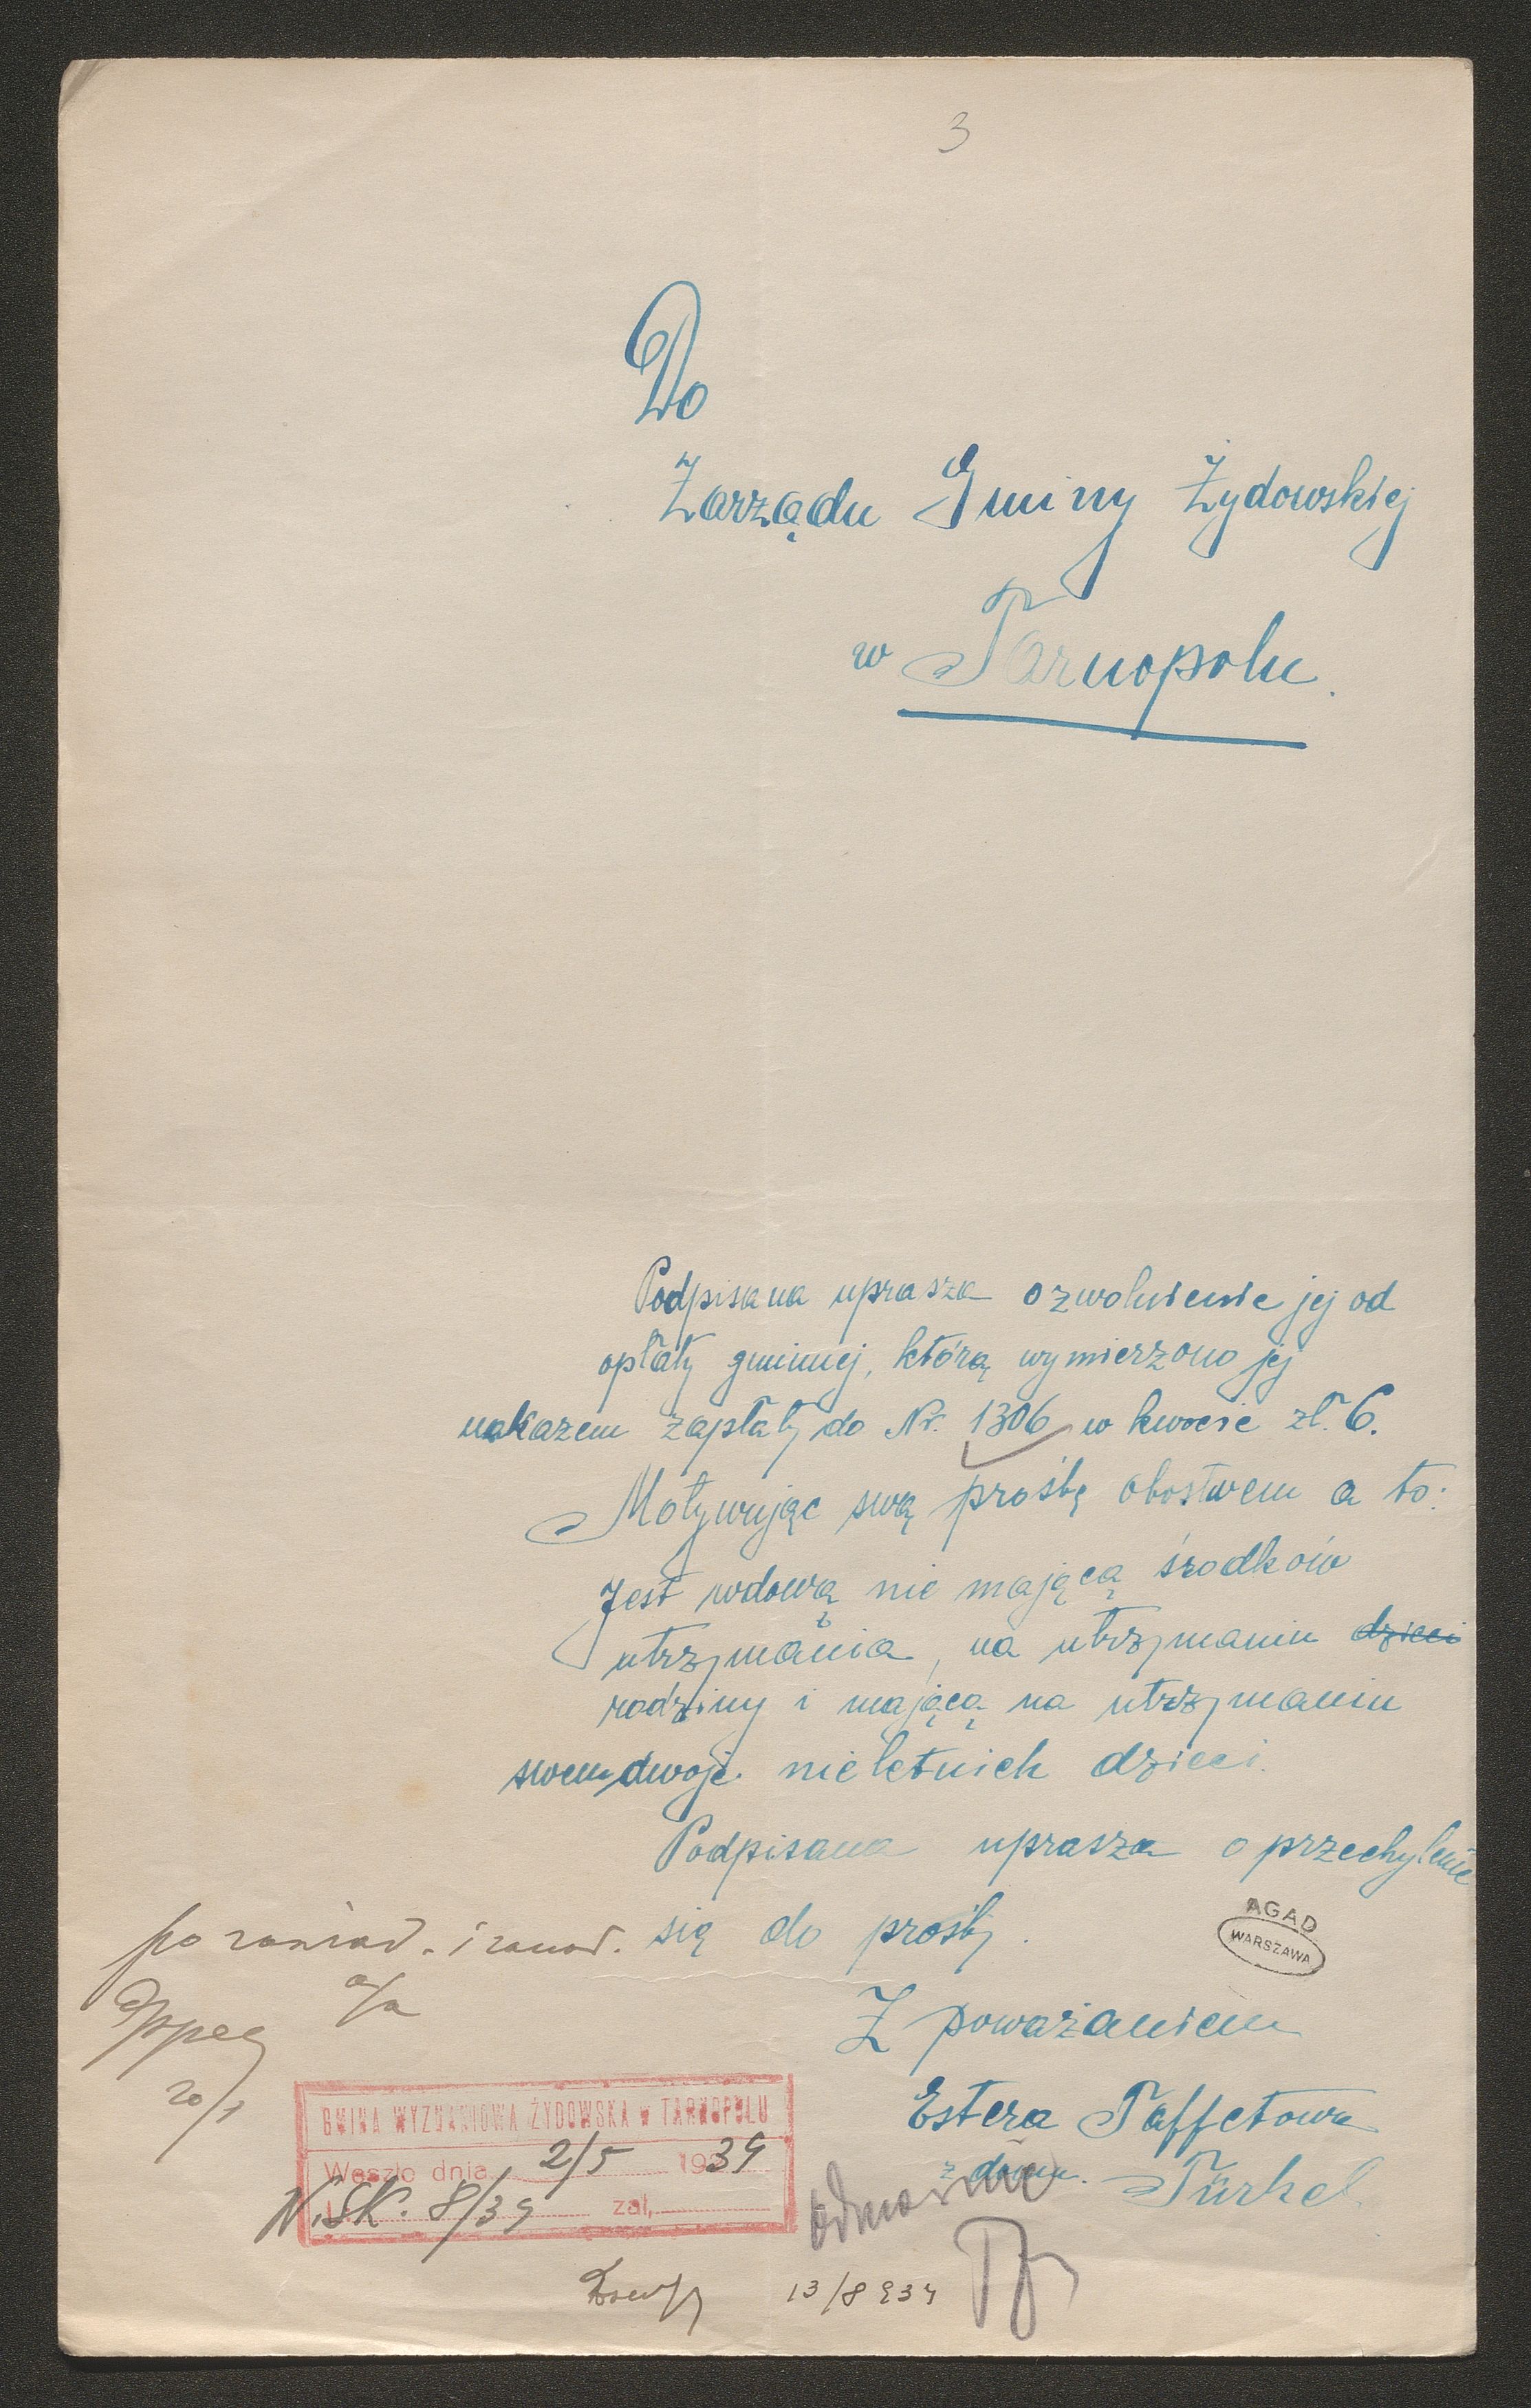 3
Do
Zarządu Gminy Żydowskiej
w Tarnopolu.
Podpisana uprasza o zwolnienie jej od
opłaty gminnej, którą wymierzono jej
nakazem zapłaty do Nr. 1306 w kwocie zł. 6.
Motywując swą prośbę obostwem a to:
Jest wdową nie mającą środków
utrzymania, na utrzymaniu dzieci
rodziny i mającą na utrzymaniu
swem dwoje nieletnich dzieci.
Podpisana uprasza o przechylenie
się do prośby.
AGAD
WARSZAWA
Z poważaniem
Estera Taffetowa
z domu. Türkel
po zawiad. i zanot.
a/a
20/1
GMINA WYZNANIOWA ŻYDOWSKA w TARNOPOLU
Weszło dnia 2/5 1939
N. SK. 8/39 zał.
odmownie
13/8 939